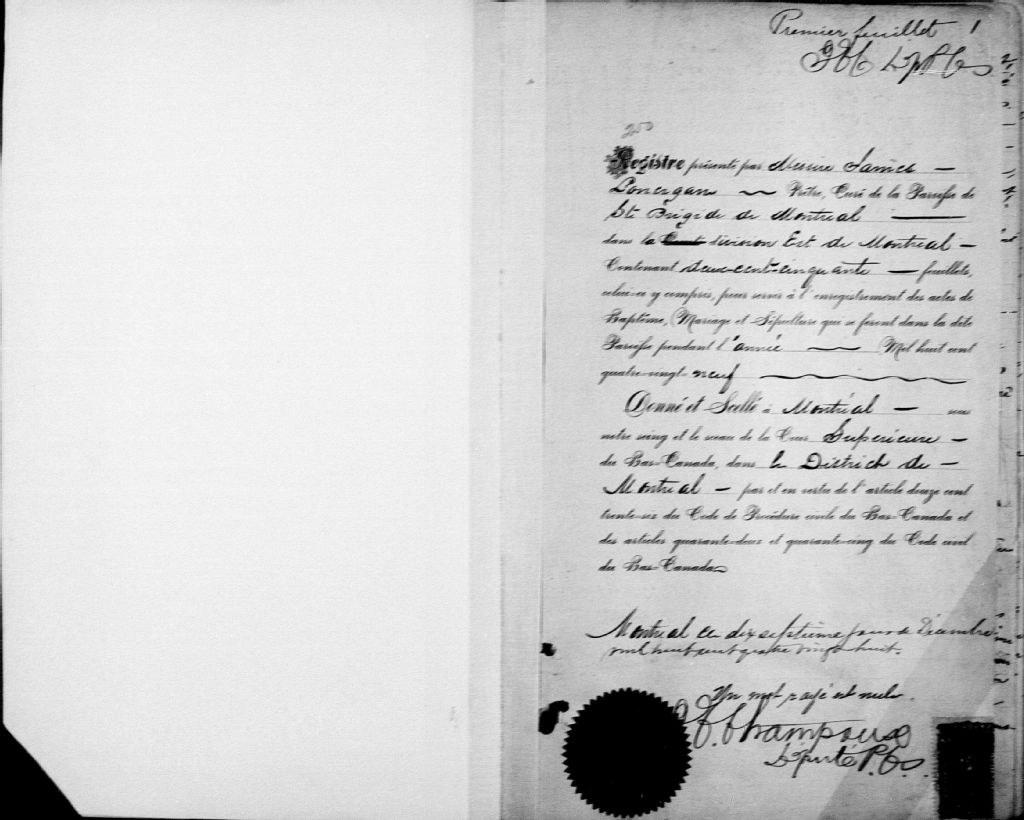 Premier feuillet 1
250
Registre présenté par Messire James —
Lonergan — Prêtre, Curé de la Paroisse de
Ste Brigide de Montréal —
dans la division Est de Montréal —
Contenant deux-cent-cinquante — feuillets,
celui-ci y compris, pour servir à l'enregistrement des actes de
Baptême, Mariage et Sépulture qui se feront dans la dite
Paroisse pendant l'année — Mil huit cent
quatre-vingt-neuf —
Donné et Scellé à Montréal — sous
notre seing et le sceau de la Cour Supérieure —
du Bas-Canada, dans le District de —
Montréal — par et en vertu de l'article douze cent
trente-six du Code de Procédure civile du Bas-Canada et
des articles quarante-deux et quarante-cinq du Code civil
du Bas-Canada
Montréal ce dix septième jour de Décembre
mil huit cent quatre vingt huit.
Un mot rayé est nul.
Champoux
Député P.C.S.